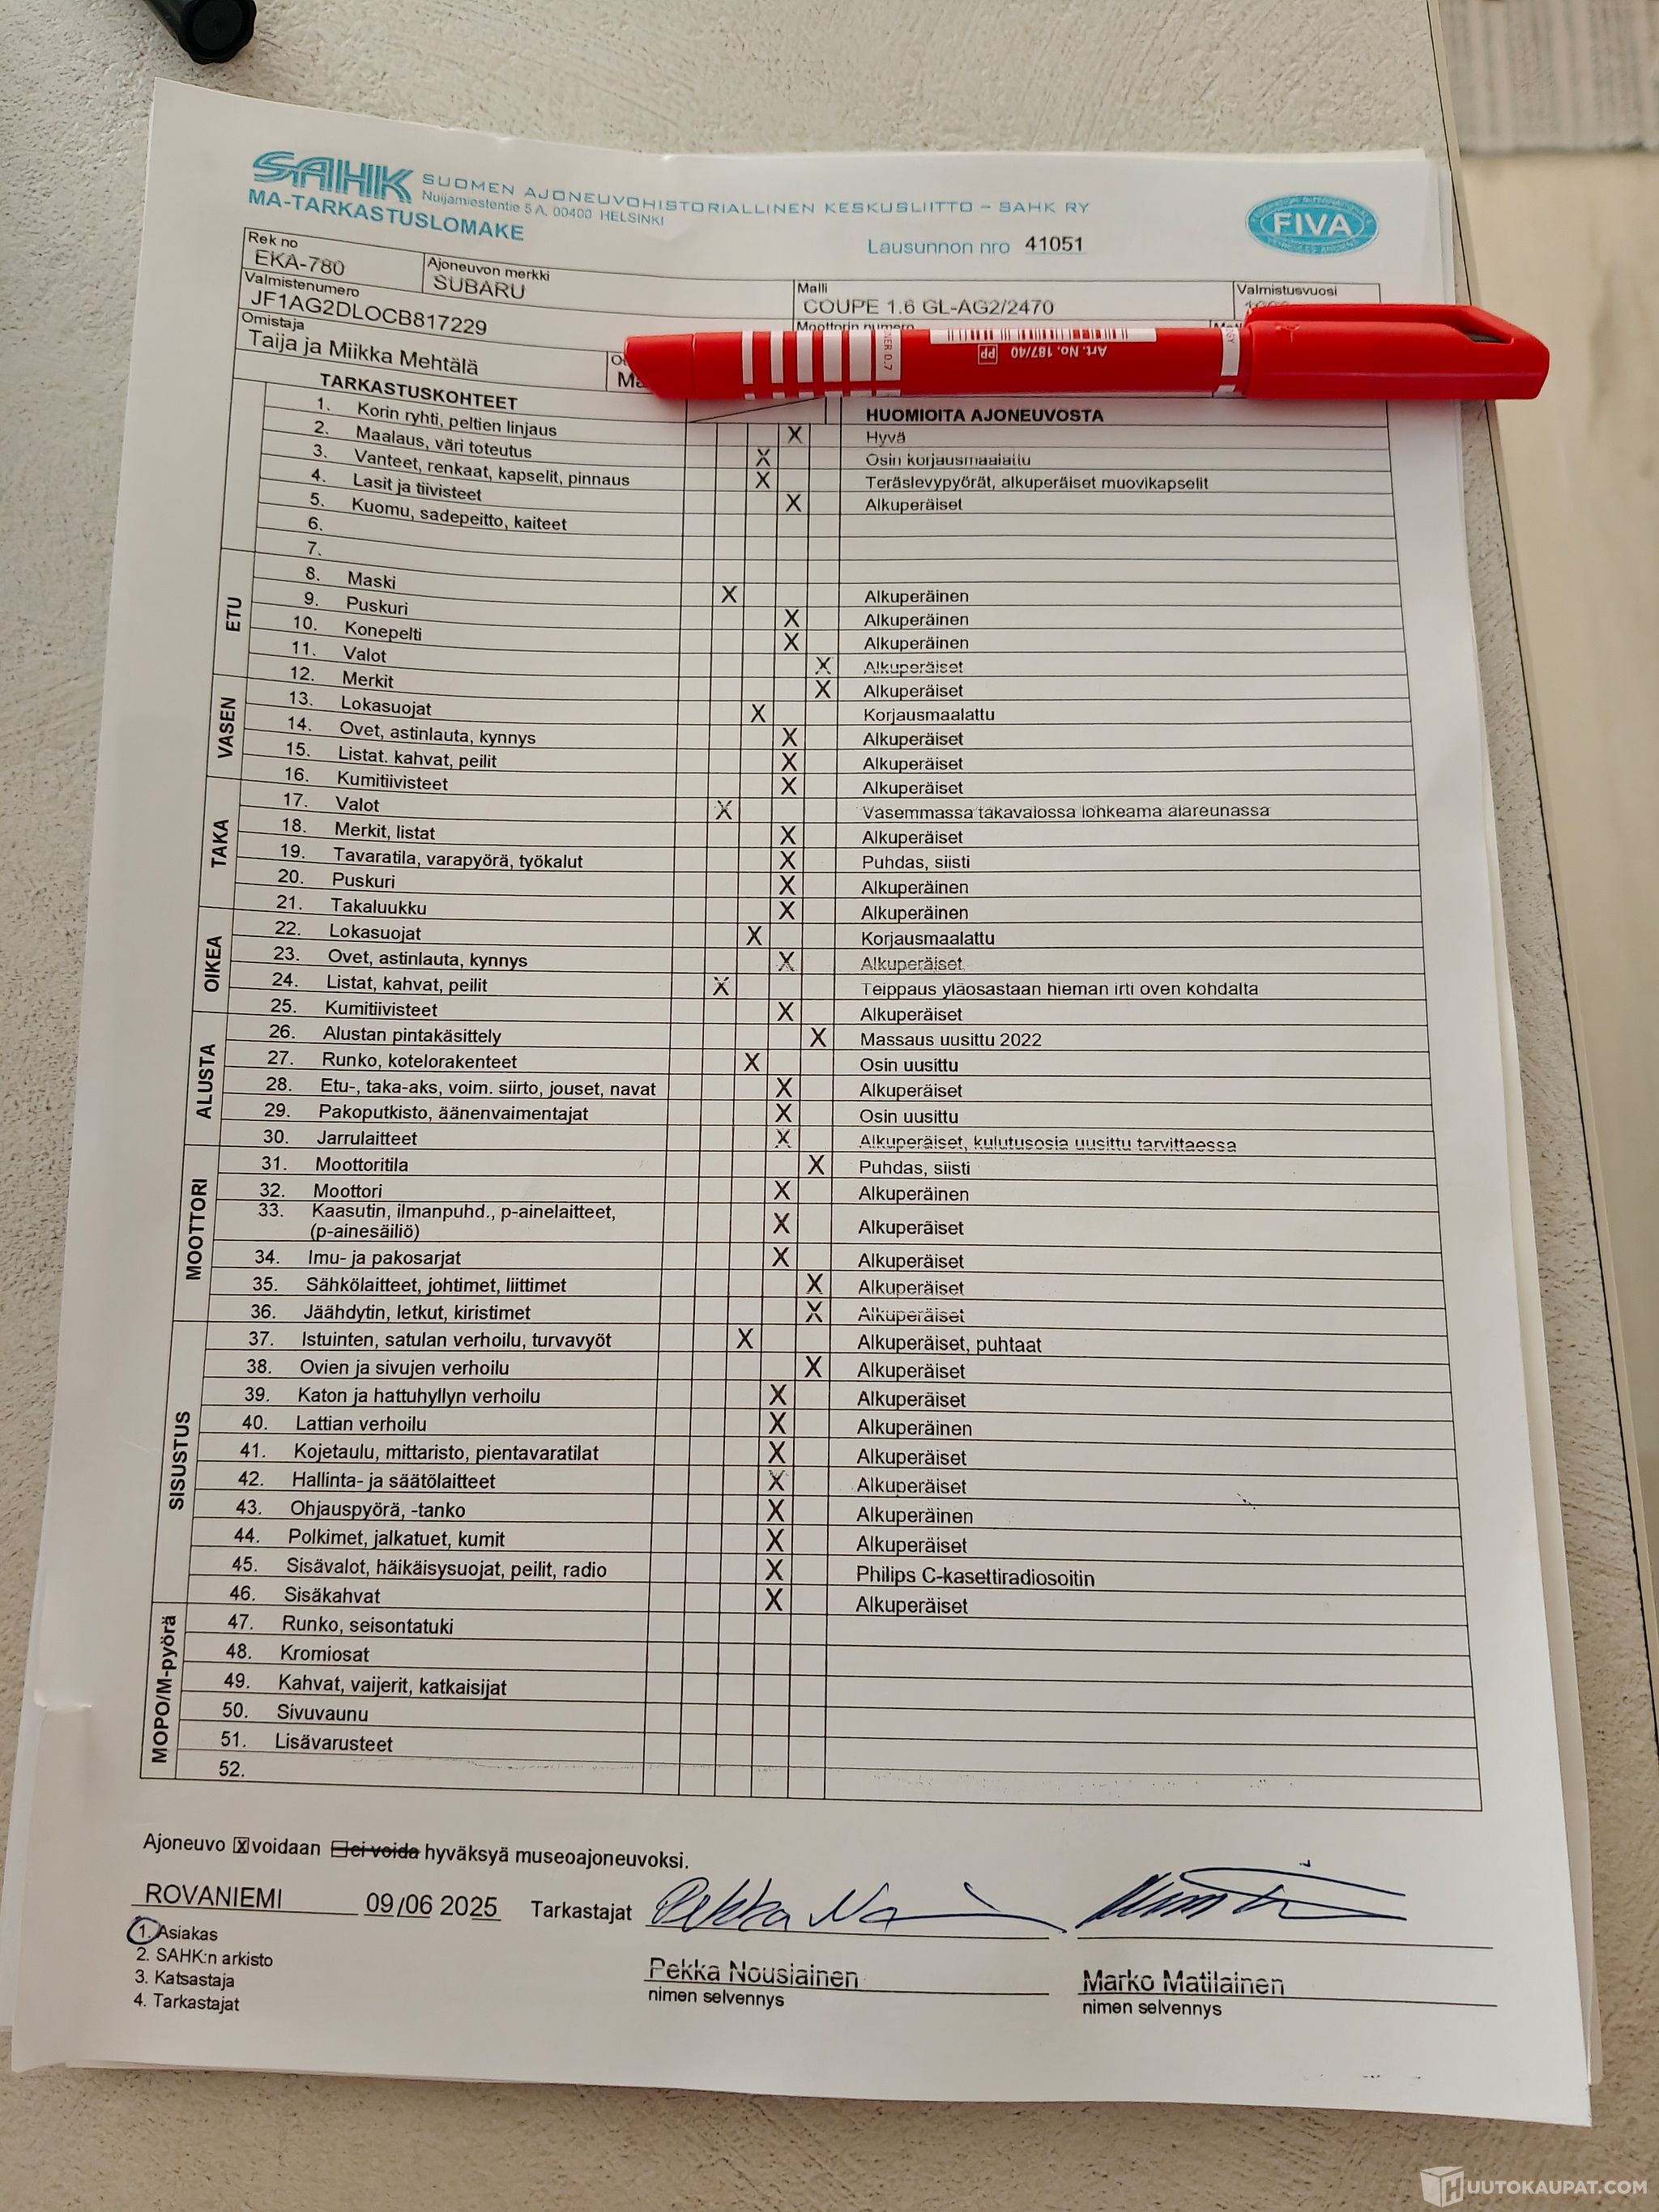 SAHK SUOMEN AJONEUVOHISTORIALLINEN KESKUSLIITTO – SAHK RY
Nuijamiestentie 5 A, 00400 HELSINKI
MA-TARKASTUSLOMAKE
Lausunnon nro 41051
FIVA
Rek no Ajoneuvon merkki Malli Valmistusvuosi
EKA-780 SUBARU COUPE 1.6 GL-AG2/2470
Valmistenumero Moottorin numero
JF1AG2DLOCB817229
Omistaja
Taija ja Miikka Mehtälä
Art. No. 187/40 PP
TARKASTUSKOHTEET HUOMIOITA AJONEUVOSTA
1. Korin ryhti, peltien linjaus X Hyvä
2. Maalaus, väri toteutus X Osin korjausmaalattu
3. Vanteet, renkaat, kapselit, pinnaus X Teräslevypyörät, alkuperäiset muovikapselit
4. Lasit ja tiivisteet X Alkuperäiset
5. Kuomu, sadepeitto, kaiteet
6.
7.
ETU
8. Maski X Alkuperäinen
9. Puskuri X Alkuperäinen
10. Konepelti X Alkuperäinen
11. Valot X Alkuperäiset
12. Merkit X Alkuperäiset
VASEN
13. Lokasuojat X Korjausmaalattu
14. Ovet, astinlauta, kynnys X Alkuperäiset
15. Listat. kahvat, peilit X Alkuperäiset
16. Kumitiivisteet X Alkuperäiset
TAKA
17. Valot X Vasemmassa takavalossa lohkeama alareunassa
18. Merkit, listat X Alkuperäiset
19. Tavaratila, varapyörä, työkalut X Puhdas, siisti
20. Puskuri X Alkuperäinen
21. Takaluukku X Alkuperäinen
OIKEA
22. Lokasuojat X Korjausmaalattu
23. Ovet, astinlauta, kynnys X Alkuperäiset
24. Listat, kahvat, peilit X Teippaus yläosastaan hieman irti oven kohdalta
25. Kumitiivisteet X Alkuperäiset
ALUSTA
26. Alustan pintakäsittely X Massaus uusittu 2022
27. Runko, kotelorakenteet X Osin uusittu
28. Etu-, taka-aks, voim. siirto, jouset, navat X Alkuperäiset
29. Pakoputkisto, äänenvaimentajat X Osin uusittu
30. Jarrulaitteet X Alkuperäiset, kulutusosia uusittu tarvittaessa
MOOTTORI
31. Moottoritila X Puhdas, siisti
32. Moottori X Alkuperäinen
33. Kaasutin, ilmanpuhd., p-ainelaitteet, X Alkuperäiset
(p-ainesäiliö)
34. Imu- ja pakosarjat X Alkuperäiset
35. Sähkölaitteet, johtimet, liittimet X Alkuperäiset
36. Jäähdytin, letkut, kiristimet X Alkuperäiset
SISUSTUS
37. Istuinten, satulan verhoilu, turvavyöt X Alkuperäiset, puhtaat
38. Ovien ja sivujen verhoilu X Alkuperäiset
39. Katon ja hattuhyllyn verhoilu X Alkuperäiset
40. Lattian verhoilu X Alkuperäinen
41. Kojetaulu, mittaristo, pientavaratilat X Alkuperäiset
42. Hallinta- ja säätölaitteet X Alkuperäiset
43. Ohjauspyörä, -tanko X Alkuperäinen
44. Polkimet, jalkatuet, kumit X Alkuperäiset
45. Sisävalot, häikäisysuojat, peilit, radio X Philips C-kasettiradiosoitin
46. Sisäkahvat X Alkuperäiset
MOPO/M-pyörä
47. Runko, seisontatuki
48. Kromiosat
49. Kahvat, vaijerit, katkaisijat
50. Sivuvaunu
51. Lisävarusteet
52.
Ajoneuvo X voidaan ei voida hyväksyä museoajoneuvoksi.
ROVANIEMI 09/06 2025 Tarkastajat
1. Asiakas
2. SAHK:n arkisto
3. Katsastaja
4. Tarkastajat
Pekka Nousiainen Marko Matilainen
nimen selvennys nimen selvennys
HUUTOKAUPAT.COM